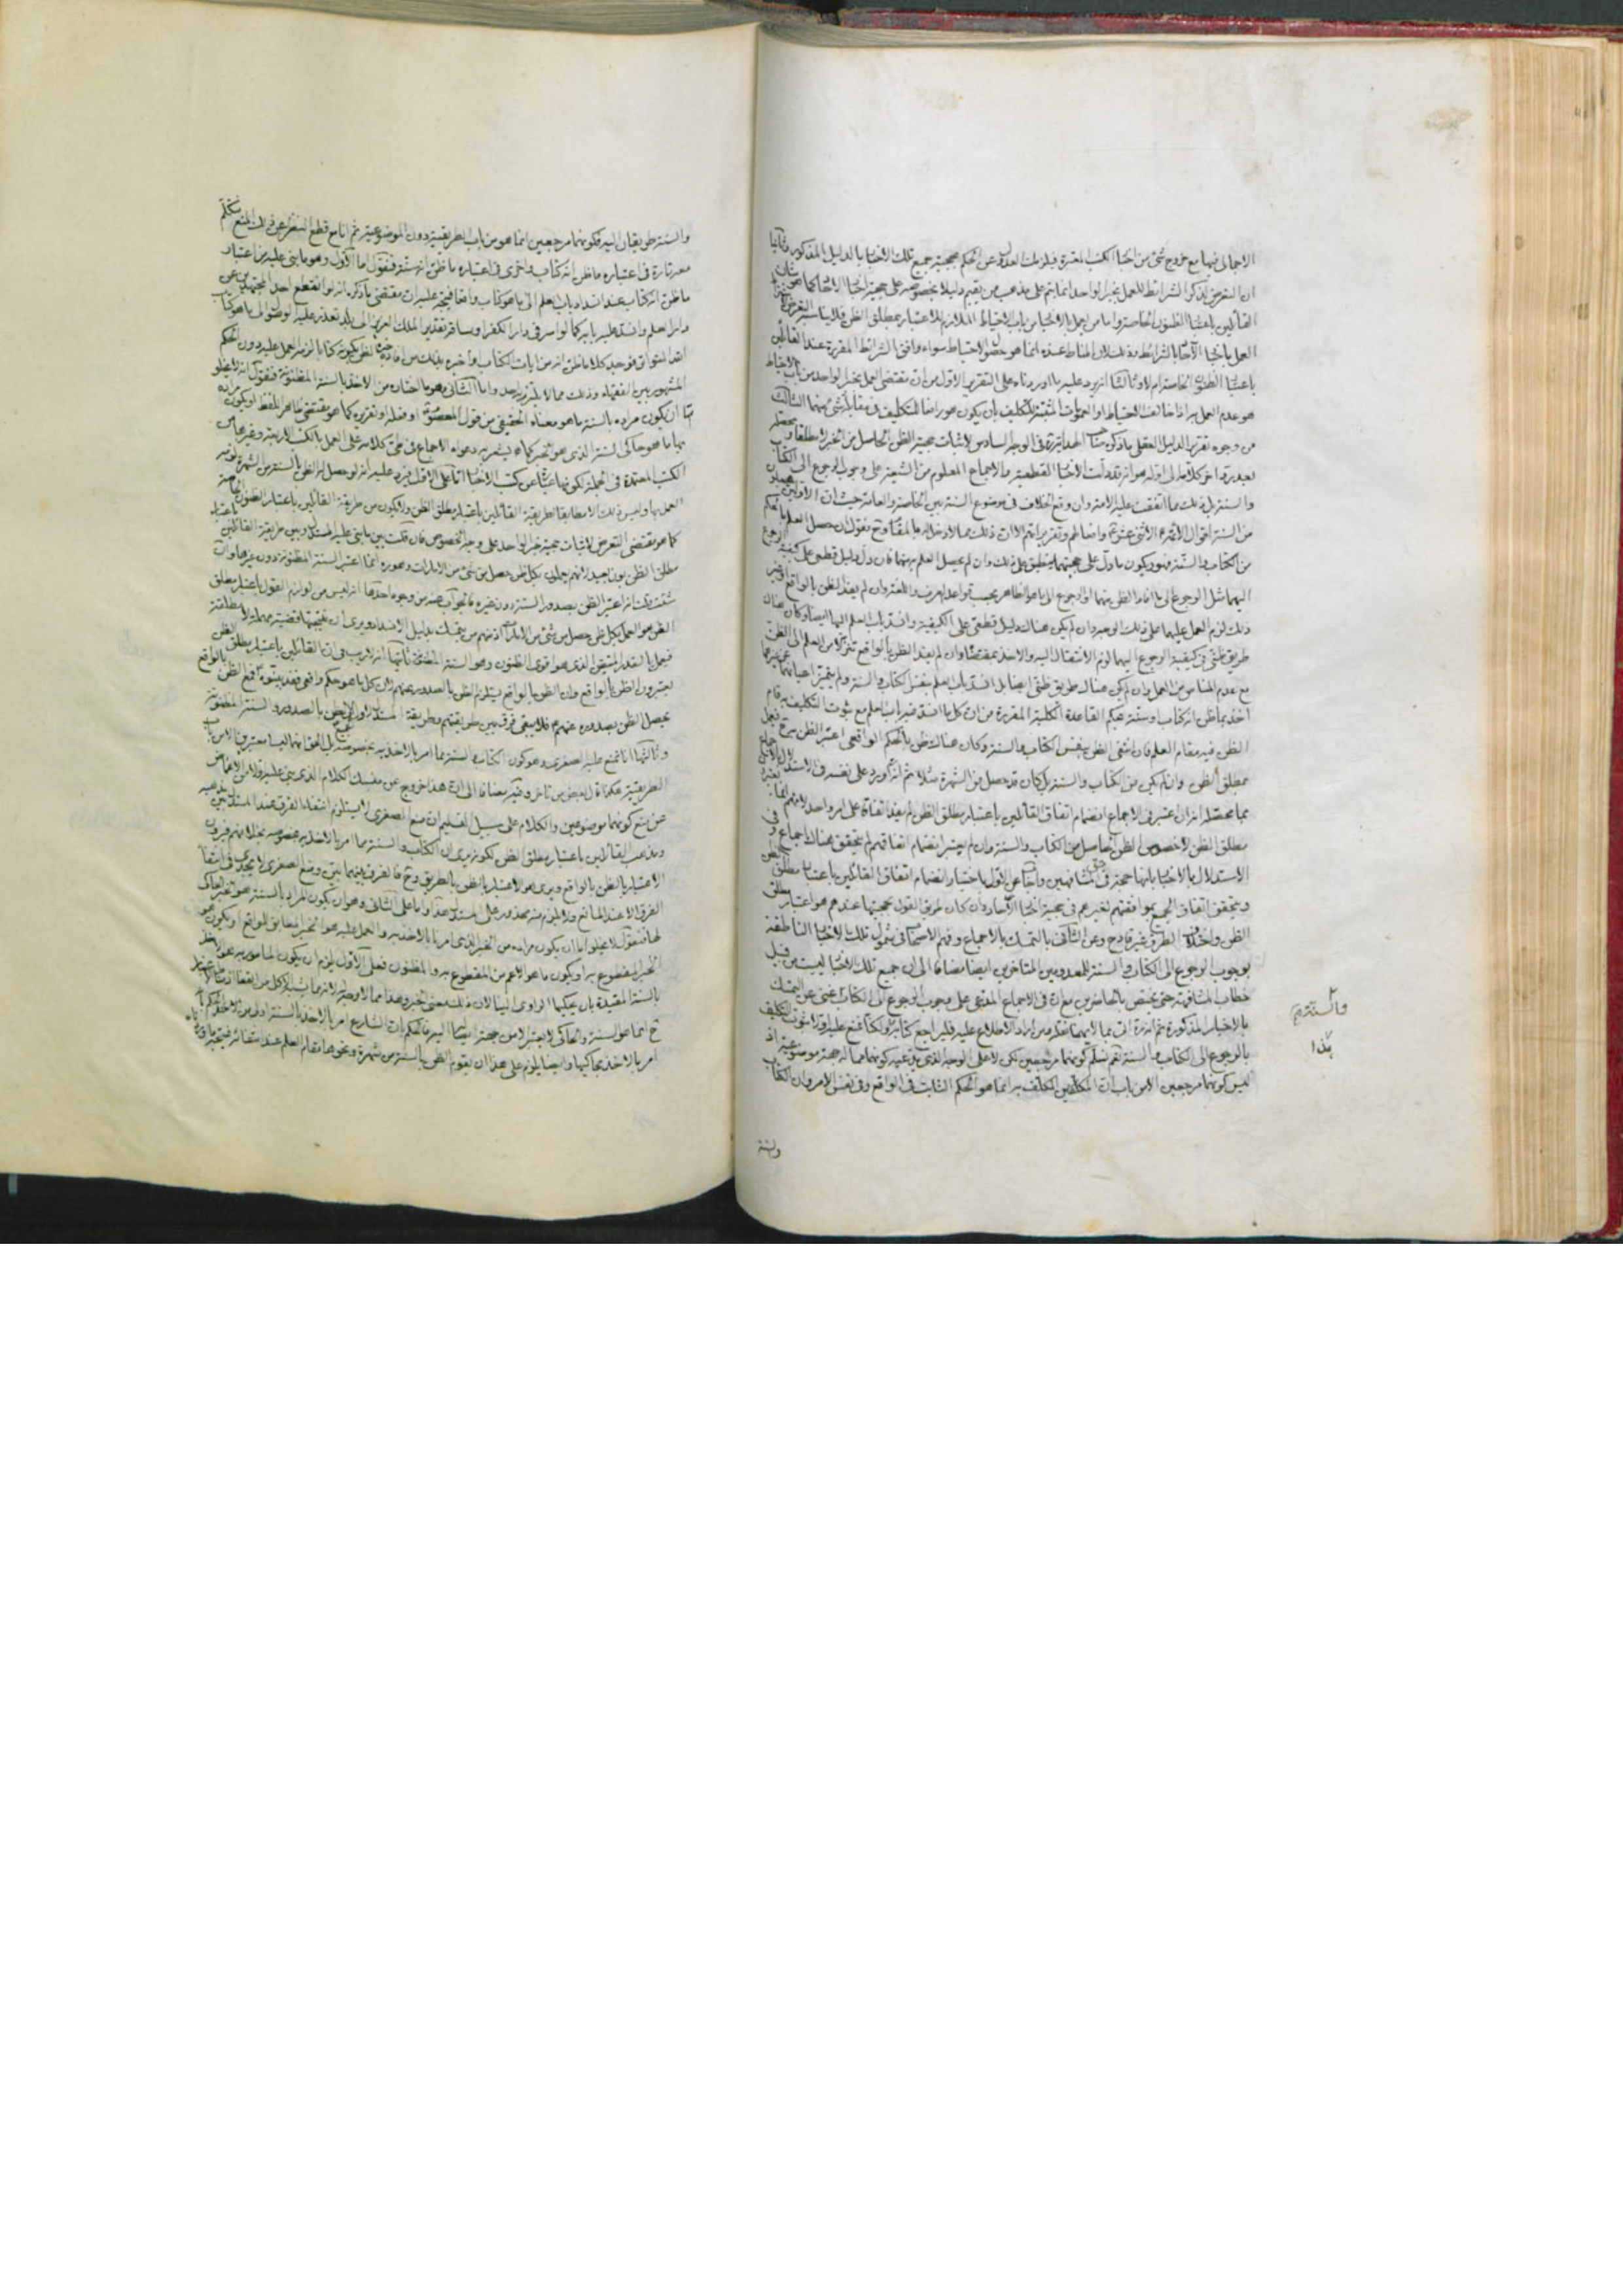 الاجمالى فيها مع خروج شئ من اخبار الكتب المعتبرة فيلزمك العدول عن الحكم بحجية جميع تلك الاخبار بالدليل المذكور وثانيا
ان التعرض لذكر الشرائط للعمل بخبر الواحد انما يتم على مذهب من يقيم دليلا بخصوصه على حجية اخبار الآحاد كما هو شأن
القائلين باعتبار الظنون الخاصة واما من يعمل بالاخبار من باب الاحتياط الملازم للاعتبار بمطلق الظن فلا يناسبه التعرض
العمل باخبار الآحاد بالشرائط وذلك لان المناط عنده انما هو حصول الاحتياط سواء وافق الشرائط المقررة عند القائلين
باعتبار الظنون الخاصة ام لا وثالثا انه يرد عليه ما اوردناه على التقرير الاول من ان مقتضى العمل بخبر الواحد من باب الاحتياط
هو عدم العمل به اذا خالف الاحتياط او العمومات المثبتة للتكليف بان يكون هو رافعا للتكليف فى مقابلة شئ منهما الثالث
من وجوه تقرير الدليل العقلى ما ذكره صاحب الهداية ره فى الوجه السادس لاثبات حجية الظن الحاصل من الخبر لا مطلقا ومحصله
بعد رد اخر كلامه الى اوله هو انه قد دلت الاخبار القطعية والاجماع المعلوم من الشيعة على وجوب الرجوع الى الكتاب
والسنة بل ذلك مما اتفقت عليه الامة وان وقع الخلاف فى موضوع السنة بين الخاصة والعامة حيث ان الاولين
من السنة اقوال الائمة الاثنى عشر ع وافعالهم وتقريراتهم الا ان ذلك مما لا دخل له بالمقام وح نقول ان حصل العلم بالحكم
من الكتاب والسنة فهو ويكون ما دل على حجيتهما منطبق على ذلك وان لم يحصل العلم بهما فان دل دليل قطعى على كيفية الرجوع
اليهما مثل الرجوع الى ما افاد الظن منهما او الرجوع الى ما هو الظاهر بحسب قواعد العرف واللغة وان لم يفد الظن بالواقع وغير
ذلك لزم العمل عليهما على ذلك الوجه وان لم يكن هناك دليل قطعى على الكيفية وانسد باب العلم اليها ايضا وكان هناك
طريق ظنى فى كيفية الرجوع اليهما لزم الانتقال اليه والاخذ بمقتضاه وان لم يفد الظن بالواقع تنزلا من العلم الى الظن
مع عدم المناص من العمل وان لم يكن هناك طريق ظنى ايضا بل انسد باب العلم بنفس الكتاب والسنة ولم يتميز احيانا عن غيرهما
اخذ بما ظن انه كتاب وسنة بحكم القاعدة الكلية المقررة من ان كل ما انسد فيه باب العلم مع ثبوت التكليف به قام
الظن فيه مقام العلم فان انتفى الظن بنفس الكتاب والسنة وكان هناك ظن بالحكم الواقعى اعتبر الظن به ح فيعمل
بمطلق الظن وان لم يكن من الكتاب والسنة بل كان قد حصل من الشهرة مثلا ثم انه اورد على نفسه فى الاستدلال بالاجماع
بما محصله انه ان اعتبر فى الاجماع انضمام اتفاق القائلين باعتبار مطلق الظن لم يفد اتفاقه على امر واحد لانهم
مطلق الظن لا خصوص الظن الحاصل من الكتاب والسنة وان لم يعتبر انضمام اتفاقهم لم يتحقق هناك اجماع وفى
الاستدلال بالاخبار بانها حجة فى حق المشافهين واجاب عن الاول باختيار انضمام اتفاق القائلين باعتبار مطلق الظن
ويتحقق اتفاق الجميع بموافقتهم لغيرهم فى حجية اخبار الآحاد وان كان طريق القول بحجيتها عندهم هو اعتبار مطلق
الظن واختلاف الطرق غير قادح وعن الثانى بالتمسك بالاجماع وفهم الاصحاب فى شمول تلك الاخبار الناطقة
بوجوب الرجوع الى الكتاب والسنة للمعدومين المتاخرين ايضا مضافا الى ان جميع تلك الاخبار ليست من قبيل
خطاب المشافهة حتى يختص بالحاضرين مع ان فى الاجماع المدعى على وجوب الرجوع الى الكتاب غنى عن التمسك
بالاخبار المذكورة ثم انه ره اتى بما لا يهمنا نقله من اراد الاطلاع عليه فليراجع كتابه ولكنا نمنع عليه اولا ثبوت التكليف
بالرجوع الى الكتاب والسنة نعم نسلم كونهما مرجعين لكن لا على الوجه الذى يدعيه كونهما مما له جهة موضوعية اذ
ليس كونهما مرجعين الا من باب ان المكلفين المكلف به انما هو الحكم الثابت فى الواقع وفى نفس الامر وان الكتاب
والسنة
والسنة طريقان اليه فكونهما مرجعين انما هو من باب الطريقية دون الموضوعية ثم انا مع قطع النظر عن ذلك المنع نتكلم
معه تارة فى اعتباره ما ظن انه كتاب واخرى فى اعتباره ما ظن انه سنة فنقول اما الاول وهو ما بنى عليه من اعتبار
ما ظن انه كتاب عند انسداد باب العلم الى ما هو كتاب واقعا فيتجه عليه ان مقتضى ما ذكره انه لو انقطع احد المجتهدين عن
دار العلم وانسد عليه بابه كما لو اسر فى دار الكفر او سافر بتقدير الملك العزيز الى بلد تعذر عليه الوصول الى ما هو كتاب
المشهور بين الفقهاء وذلك مما لا يلتزم به احد واما الثانى وهو ما اختاره من الاخذ بالسنة المظنونة فنقول انه لا يخلو
اما ان يكون مراده بالسنة ما هو معناه الحقيقى من قول المعصوم او فعله او تقريره كما هو مقتضى ظاهر اللفظ او يكون مراده
بها ما هو حاكى السنة الذى هو الخبر كما قد يشعر به دعواه الاجماع فى طى كلامه على العمل بالكتب الاربعة وغيرها من
الكتب المعتمدة فى الجملة لكونها عبارة عن كتب الاخبار اما على الاول فيرد عليه انه لو حصل له الظن بالسنة من الشهرة لزمه
العمل بها وليس ذلك الا مطابقا لطريقة القائلين باعتبار مطلق الظن ولا يكون من طريقة القائلين باعتبار الظنون الخاصة
كما هو مقتضى التعرض لاثبات حجية خبر الواحد على وجه الخصوص فان قلت بين ما بنى عليه المستدل وبين طريقة القائلين باعتبار
مطلق الظن بون بعيد لانهم يعملون بكل ظن حصل من شئ من الامارات وهو ره انما اعتبر السنة المظنونة دون غيرها وان
شئت قلت انه اعتبر الظن بصدور السنة دون غيره قلت الجواب عنه من وجوه احدها انه ليس من لوازم القول باعتبار مطلق
الظن هو العمل بكل ظن حصل من شئ من الامارات اذ منهم من يتمسك بدليل الانسداد ويرى ان نتيجتها قضية مهملة لا مطلقة
فيعمل بالقدر المتيقن الذى هو اقوى الظنون وهو السنة المظنونة ثانيها انه لا ريب فى ان القائلين باعتبار مطلق الظن
يعتبرون الظن بالواقع وان الظن بالواقع يستلزم الظن بالصدور عنهم لان كل ما هو حكم واقعى فقد بينوه ع فمع الظن بالواقع
يحصل الظن بصدوره عنهم ع فلا يبقى فرق بين طريقتهم وطريقة المستدل اذ الجميع يعملون بالصدور والسنة المظنونة
وثالثها انا نمنع عليه الصغرى وهو كون الكتاب والسنة مما امر بالاخذ به بخصوصه
عن منع كونهما موضوعين والكلام على سبيل التسليم ان منع الصغرى لا يستلزم انتفاء الفرق عند المستدل بين مذهبه
ومذهب القائلين باعتبار مطلق الظن لكونه يرى ان الكتاب والسنة مما امر بالاخذ به بخصوصه بخلافهم فيرون
الاعتبار بالظن بالواقع ويرى هو الاعتبار بالظن بالطريق وح فالفرق بينهما بين ومنع الصغرى لا يجدى فى انتفاء
الفرق الا عند المانع ولا يلزم منه محذور على المستدل هذا واما على الثانى وهو ان يكون المراد بالسنة هو الخبر الحاكى
لها فنقول لا يخلو اما ان يكون مراده من الخبر الذى امرنا بالاخذ به والعمل عليه هو الخبر المطابق للواقع او يكون هو
الخبر المقطوع به او يكون ما هو الاعم من المقطوع به والمظنون فعلى الاول يلزم ان يكون المامور به هو العمل
بالسنة المقيدة بان يحكيها الراوى لنا لان ذلك معنى الخبر وهذا مما لا وجه له لانه مما يشبه
ح انما هو السنة والحاكى لا يعتبر الا من جهة ايصاله اليه فالحكم بان الشارع امر بالاخذ بالسنة اولى من الحكم بانه
امر بالاخذ بحاكيها وايضا يلزم على هذا ان يقوم الظن بالسنة من شهرة ونحوها مقام العلم عند انتفائه